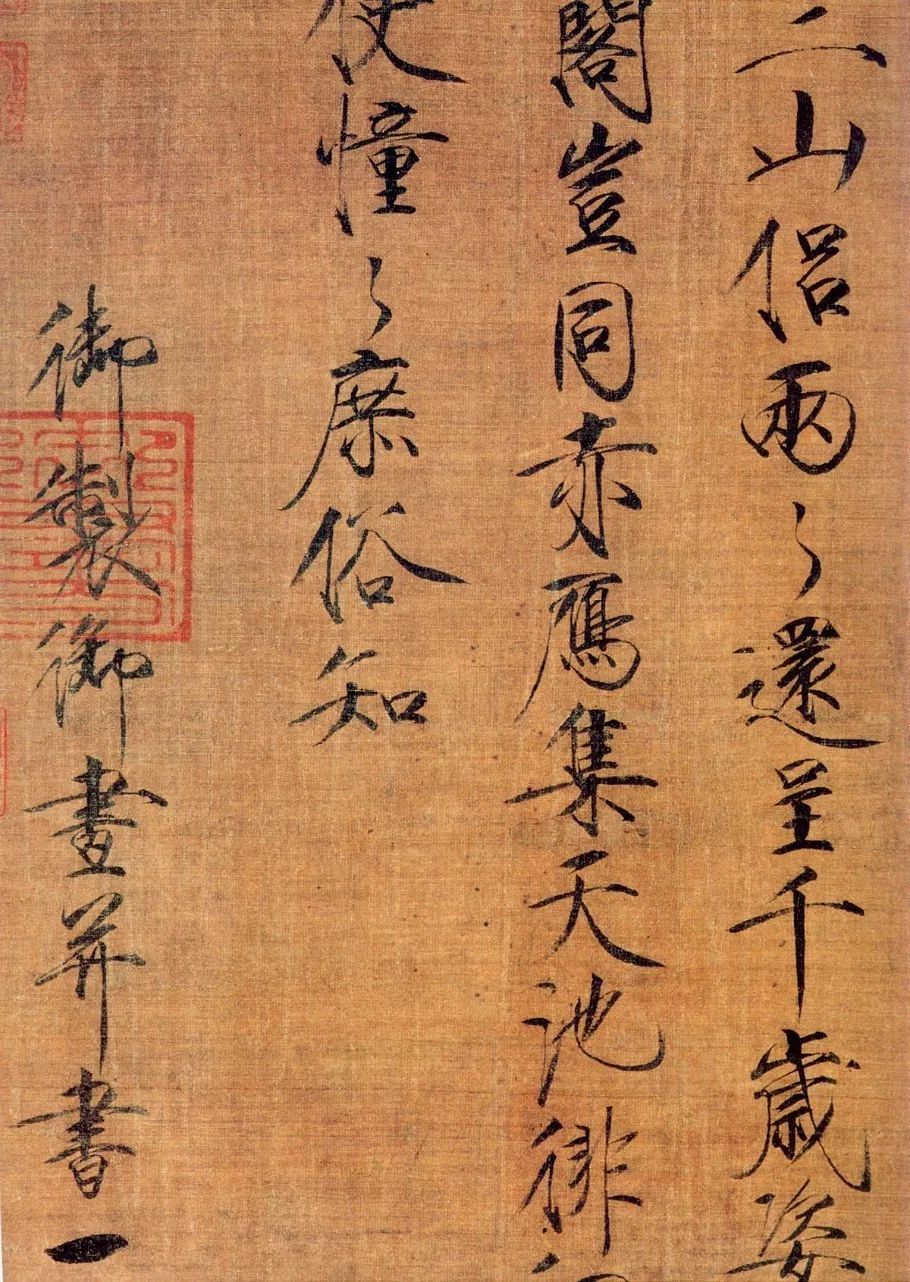 三山侶兩〻還呈千歲姿
閣豈同赤鴈集天池徘
使憧〻庶俗知
御製御畫并書
一